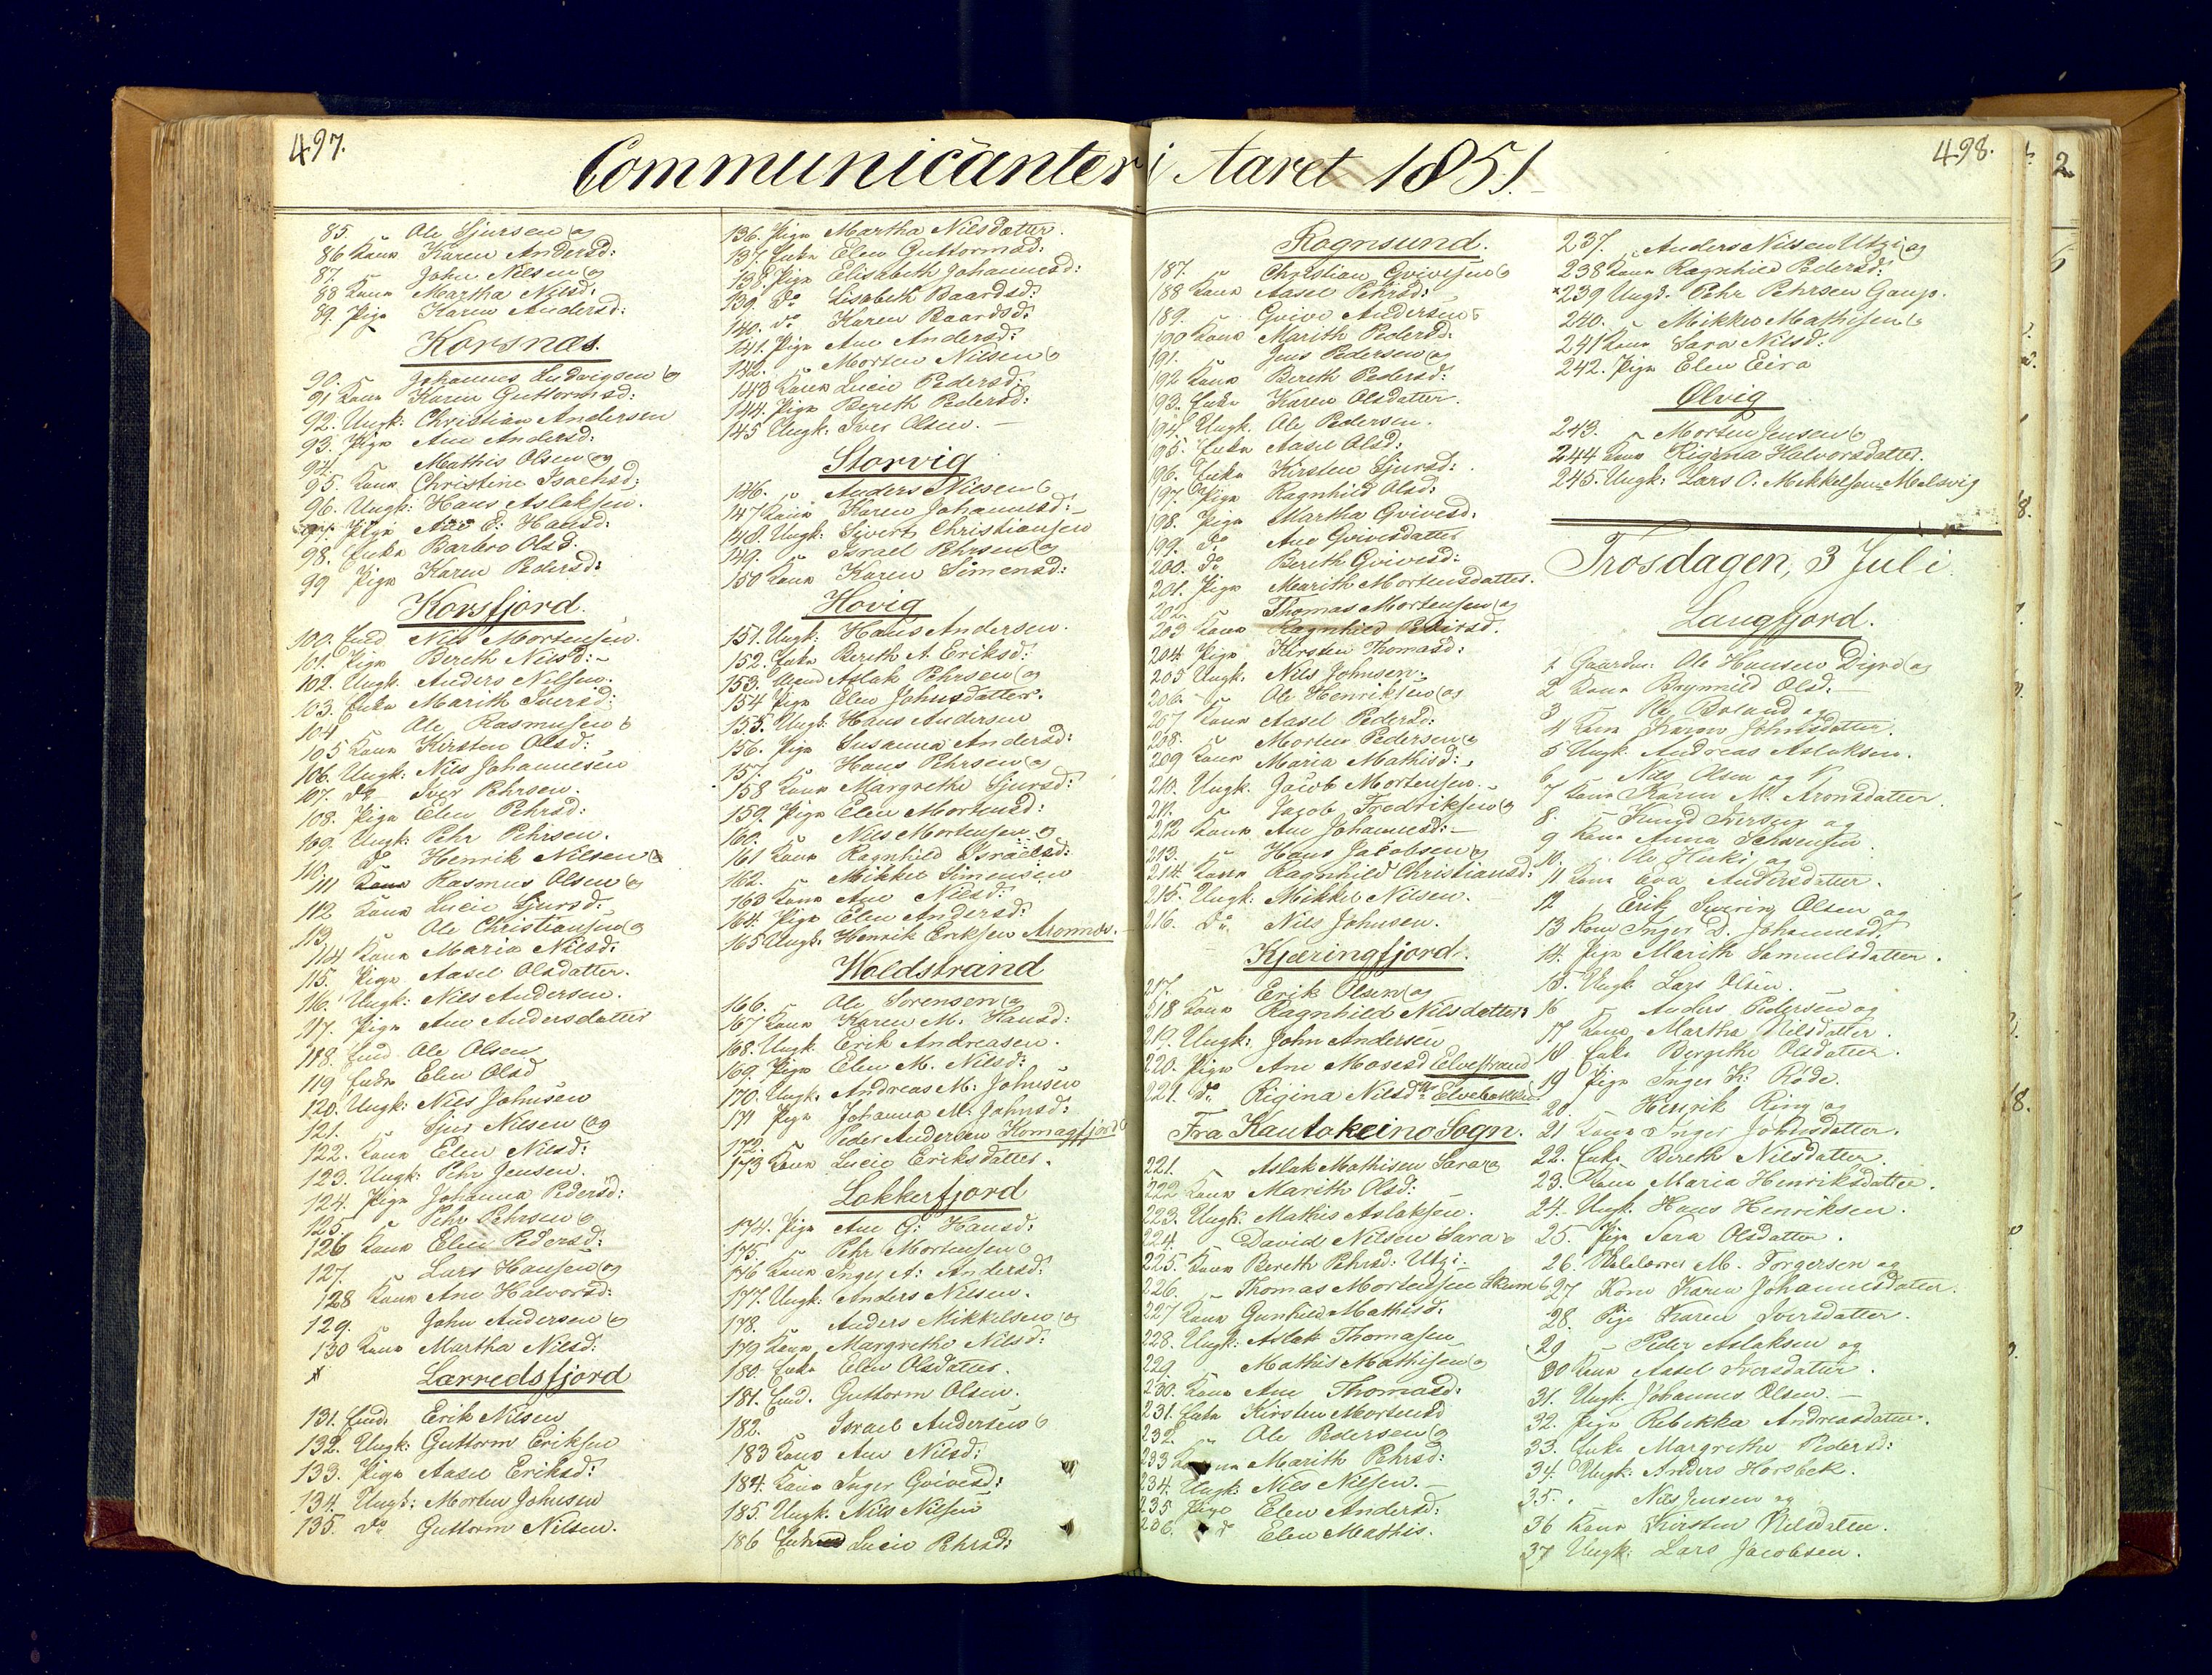 497.
Communicanter i Aaret 1851.
498.
85. Ole Sjursen og
86 Kone Karen Andersd:
87. John Nilsen og
88 Kone Martha Nilsd:
89. Pige Karen Andersd:
Korsnæs.
90. Johannes Ludvigsen og
91 Kone Karen Guttormsd:
92. Ungk: Christian Andersen
93. Pige Ane Andersd:
94. Mathis Olsen og
95. Kone Christine Isachsd:
96. Ungk: Hans Aslaksen.
97. Pige Ane E: Hansd:
98. Enke Barbro Olsd.
99 Pige Karen Pedersd:
Korsfjord.
100. Enkd Nils Mortensen.
101. Pige Bereth Nilsd: -
102. Ungk. Anders Nilsen.
103. Enke Marith Iversd:
104 Ole Rasmusen og
105 Kone Kirsten Olsd:
106. Ungk: Nils Johannesen
107. do Iver Pehrsen.
108. Pige Elen Pehrsd:
109. Ungk: Pehr Pehrsen.
110. do Henrik Nilsen
111 Rasmus Olsen og
112 Kone Lucie Sjursd:
113 Ole Christiansen og
114 Kone Maria Nilsd:
115. Pige Aasel Olsdatter.
116. Ungk: Nils Andersen.
117. Pige Ane Andersdatter
118. Enkd Ole Olsen
119 Enke Elen Olsd
120. Ungk: Nils Johnsen
121. Sjur Nilsen og
122. Kone Elen Nilsd:
123. Ungk: Pehr Jensen.
124. Pige Johanna Pedersd:
125. Pehr Pehrsen og
126 Kone Elen Pedersd:
127. Lars Hansen og
128 Kone Ane Halvorsd:
129. John Andersen og
130 Kone Martha Nilsd:
Lærredsfjord
131. Enkd. Erik Nilsen
132. Ungk: Guttorm Eriksen
133. Pige Aasel Eriksd:
134. Ungk: Morten Johnsen
135. do Guttorm Nilsen.
136. Pige Martha Nilsdatter.
137. Enke Elen Guttormsd:
138. Pige Elisabeth Johannesd:
139. do Lisabeth Baardsd:
140. do Karen Baardsd:
141. Pige Ane Andersd:
142. Morten Nilsen og
143 Konen Lucie Pedersd:
144. Pige Bereth Pedersd:
145 Ungk: Iver Olsen. -
Storvig
146. Anders Nilsen og
147 Kone Karen Johannesd: -
148. Ungk: Sivert Christiansen
149. Israel Pehrsen og
150 Kone Karen Simensd:
Hovig
151. Ungk: Hans Andersen.
152. Enke Bereth A. Eriksd:
153. Aslak Pehrsen og
154 Pige Elen Johnsdatter.
155. Ungk: Hans Andersen
156. Pige Susanna Andersd:
157. Hans Pehrsen og
158 Kone Margrethe Sjursd:
159. Pige Elen Mortensd:
160. Nils Mortensen og
161 Kone Ragnhild Israelsd:
162. Mikkel Simensen
163 Kone Ane Nilsd:
164. Pige Elen Andersd:
165 Ungk. Henrik Eriksen Aronnæs.
Woldstrand
166. Ole Sorensen og
167 Kone Karen M. Hansd:
168. Ungk. Erik Andreasen.
169 Pige Elen M. Nilsd:
170. Ungk. Andreas M: Johnsen
171 Pige Johanna M: Johnsd:
172. Peder Andersen Komagfjord og
173 Kone Lucie Eriksdatter.
Lokkerfjord
174. Pige Ane G: Hansd:
175. Pehr Mortensen og
176 Kone Inger A: Andersd:
177. Ungk: Anders Nilsen.
178. Anders Mikkelsen og
179 Kone Margrethe Nilsd:
180. Enke Elen Olsdatter.
181. Enkd. Guttorm Olsen.
182. Israel Andersen og
183 Kone Ane Nilsd:
184. Kone Inger Gvivesd:
185. Ungk. Nils Nilsen
186 Lucie Pehrsd:
Rognsund.
187. Christian Gvivesen og
188 Kone Aasel Pehrsd:
189. Gvive Andersen og
190 Kone Marith Pedersd:
191. Jens Pedersen og
192 Kone Bereth Pedersd:
193. Enke Karen Olsdatter.
194. Ungk. Ole Pedersen.
195. Enke Aasel Olsd:
196. Enke Kirsten Sjursd:
197. Pige Ragnhild Olsd:
198. Pige Martha Gvivesd:
199. do Ane Gvivesdatter
200. do Bereth Gvivesd:
201. Pige Marith Mortensdatter.
202. Thomas Mortensen og
203 Kone Ragnhild Pehrsd.
204. Pige Kirsten Thomasd:
205 Ungk. Nils Johnsen.
206. Ole Henriksen og
207 Kone Aasel Pedersd:
208. Morten Pedersen og
209 Kone Maria Mathisd:
210. Ungk. Jacob Mortensen.
211. Jacob Fredriksen og
212 Kone Ane Johannesd: -
213. Hans Jacobsen og
214. Kone Ragnhild Christiansd:
215. Ungk. Mikkel Nilsen.
216. Do Nils Johnsen.
Kjæringfjord.
217. Erik Olsen og
218 Kone Ragnhild Nilsdatter:
219. Ungk: John Andersen
220. Pige Ane Mosesd Elvestrand
221. do Rigina Nilsdtr Elvebakken
Fra Kautokeino Sogn.
221. Aslak Mathisen Sara og
222 Kone Marith Olsd:
223. Ungk. Mathis Aslaksen.
224. David Nilsen Sara og
225. Kone Bereth Pehrsd: Utzi
226. Thomas Mortensen Skum og
227 Kone Gunhild Mathisd:
228. Ungk: Aslak Thomasen
229. Mathis Mathisen og
230. Kone Ane Thomasd:
231. Enke Kirsten Mortensd
232. Ole Pedersen og
233 Marith Pehrsd:
234. Ungk: Nils Nilsen. -
235 Pige Elen Andersd:
236. do Elen Mathis.
237. Anders Nilsen Utzi og
238 Kone Ragnhild Pedersd:
*239 Ungk. Pehr Pehrsen Gaup.
240. Mikkel Mathisen og
241 Kone Sara Nilsd:
242. Pige Elen Eira
Ølvig
243. Morten Jensen og
244 Kone Rigina Halvorsdatter.
245. Ungk: Lars O. Mikkelsen Melsvig
Trosdagen, 3 Juli
Langfjord.
1. Gaardm: Ole Hansen og
2 Kone Brynnild Olsd: -
3 Boland og
4 Kone Karen Johnsdatter.
5 Ungk. Andreas Aslaksen.
6 Nils Olsen og
7 Kone Karen M. Aronsdatter.
8. Knud Iversen og
9 Kone Anna
10. Ole og
11 Kone Eva Andersdatter.
12 Erik Severin Olsen og
13 Kone Inger D. Johannesd.
14. Pige Marith Samuelsdatter.
15. Ungk Lars Olsen.
16 Anders Pedersen og
17 Kone Martha Nilsdatter.
18 Enke Bergithe Olsdatter.
19 Pige Inger K: Röde.
20. Henrik Ring og
21 Kone Inger Johnsdatter.
22. Enke Bereth Nilsdatter.
23. Maria Henriksdatter.
24. Ungk. Hans Henriksen.
25. Pige Sara Olsdatter.
26. M. Torgersen og
27 Kone Karen Johannesdatter.
28. Pige Karen Iversdatter.
29 Peder Aslaksen og
30 Kone Aasel Iversdatter.
31. Ungk. Johannes Olsen. -
32. Pige Rebekka Andreasdatter.
33. Enke Margrethe Pedersd:
34. Ungk: Anders Horsbek.
35. Nils Jensen og
36 Kone Kirsten Nilsdatter.
37 Ungk: Lars Jacobsen.